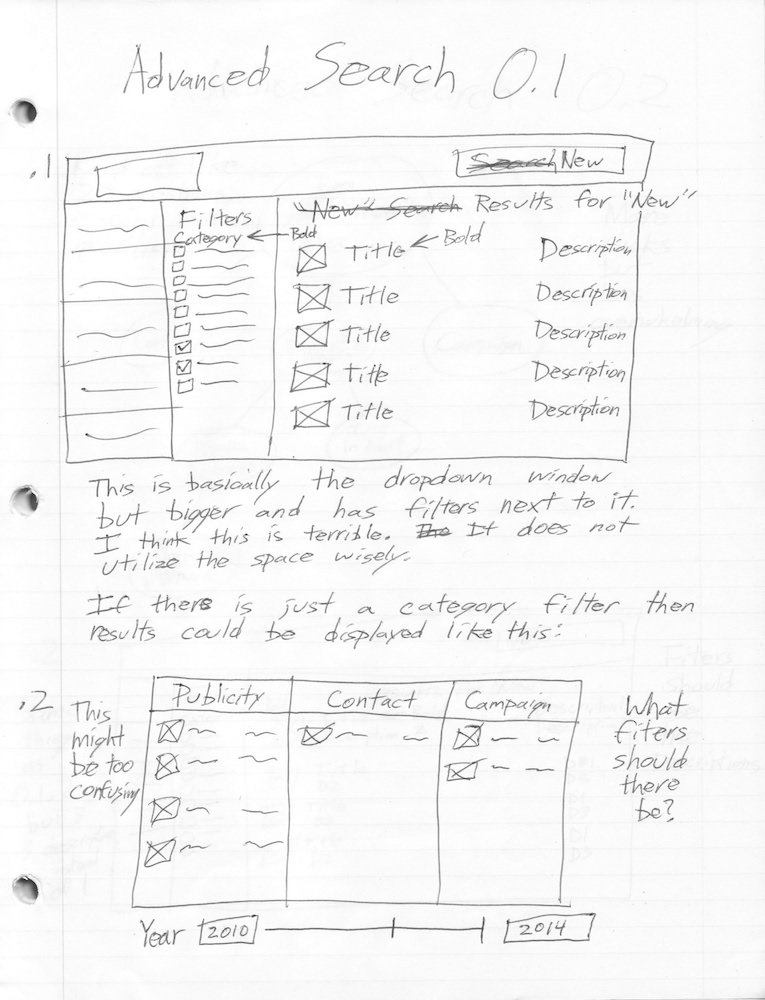 Advanced Search 0.1
.1
Search New
Filters
"New" Search Results for "New"
Category
Bold
Title
Bold
Description
Title
Description
Title
Description
Title
Description
Title
Description
This is basically the dropdown window
but bigger and has filters next to it.
I think this is terrible. The It does not
utilize the space wisely.
If there is just a category filter then
results could be displayed like this:
.2
This
might
be too
confusing
Publicity
Contact
Campaign
What
fiters
should
there
be?
Year
2010
2014